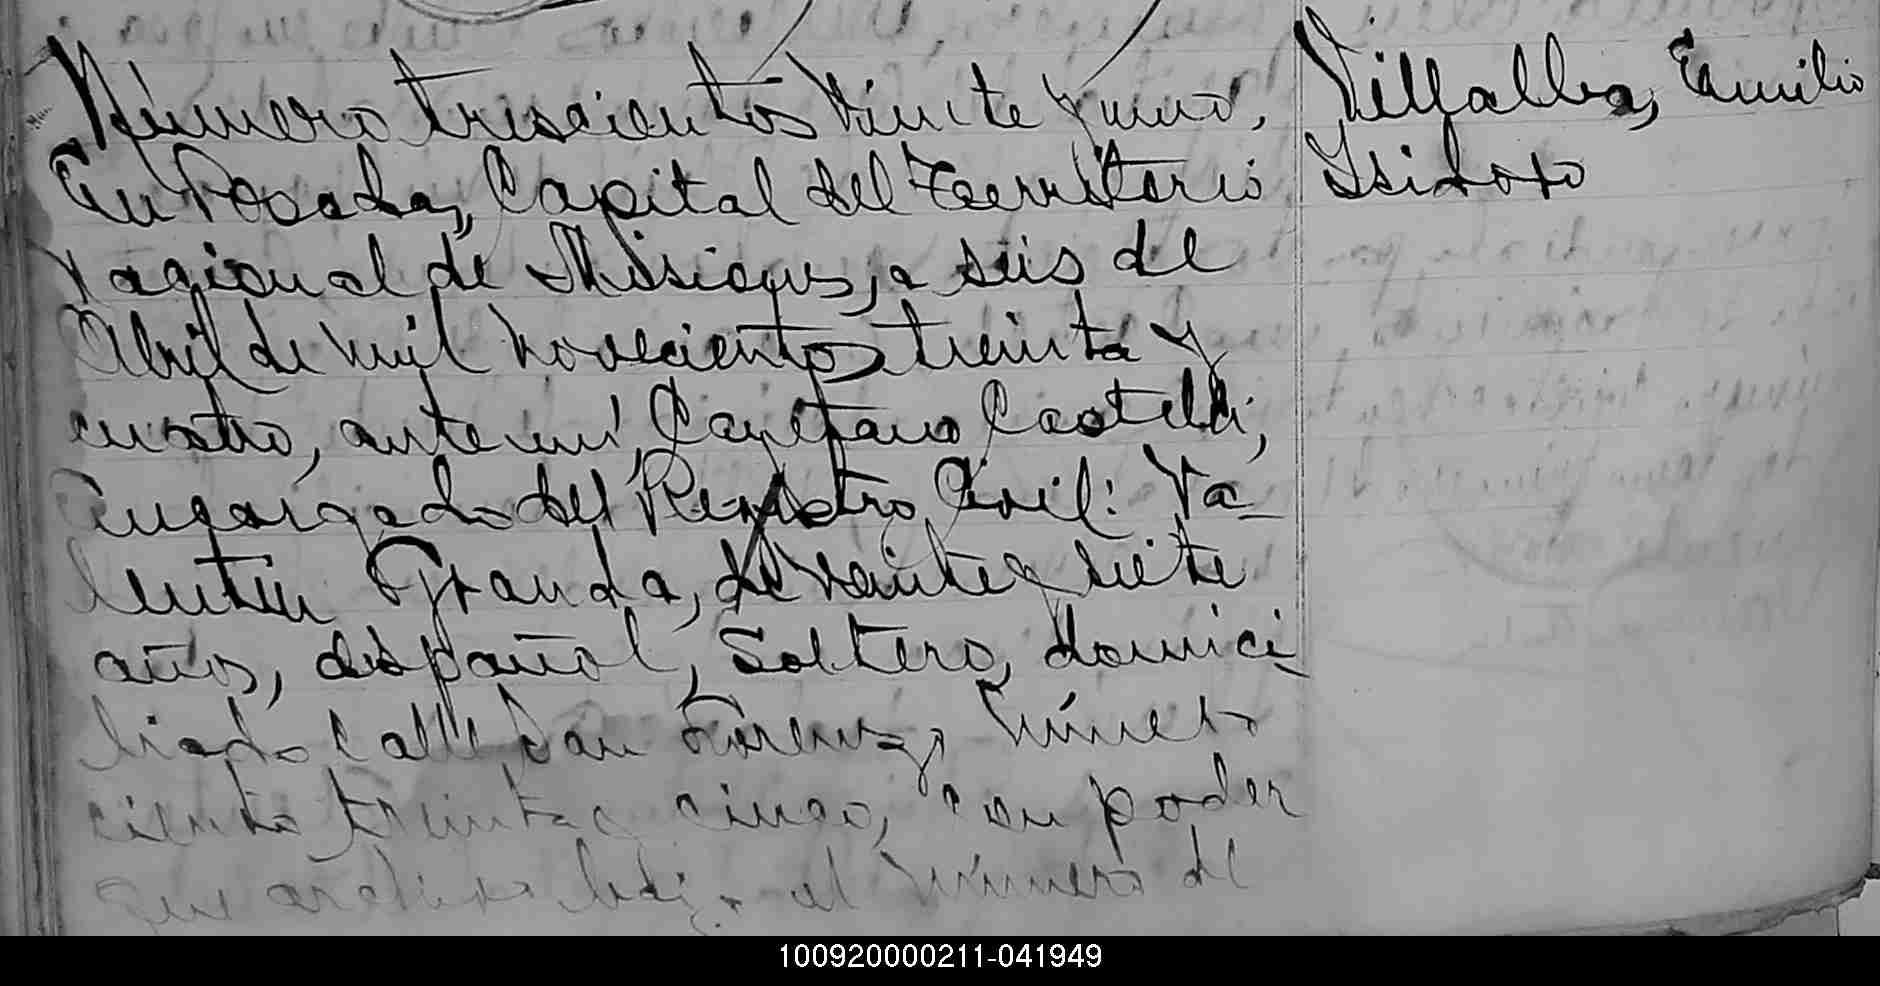 Número trescientos veinte y uno,
En Posadas, Capital del Territorio
Nacional de Misiones, a seis de
Abril de mil novecientos treinta y
cuatro, ante mí, Cayetano Castelli,
Encargado del Registro Civil: Va-
lentin Granda, de veinte y siete
años, español, Soltero, domici-
liado calle San Lorenzo, número
ciento treinta y cinco, con poder
que archivo bajo el número de
Villalba, Emilio
Isidoro
100920000211-041949